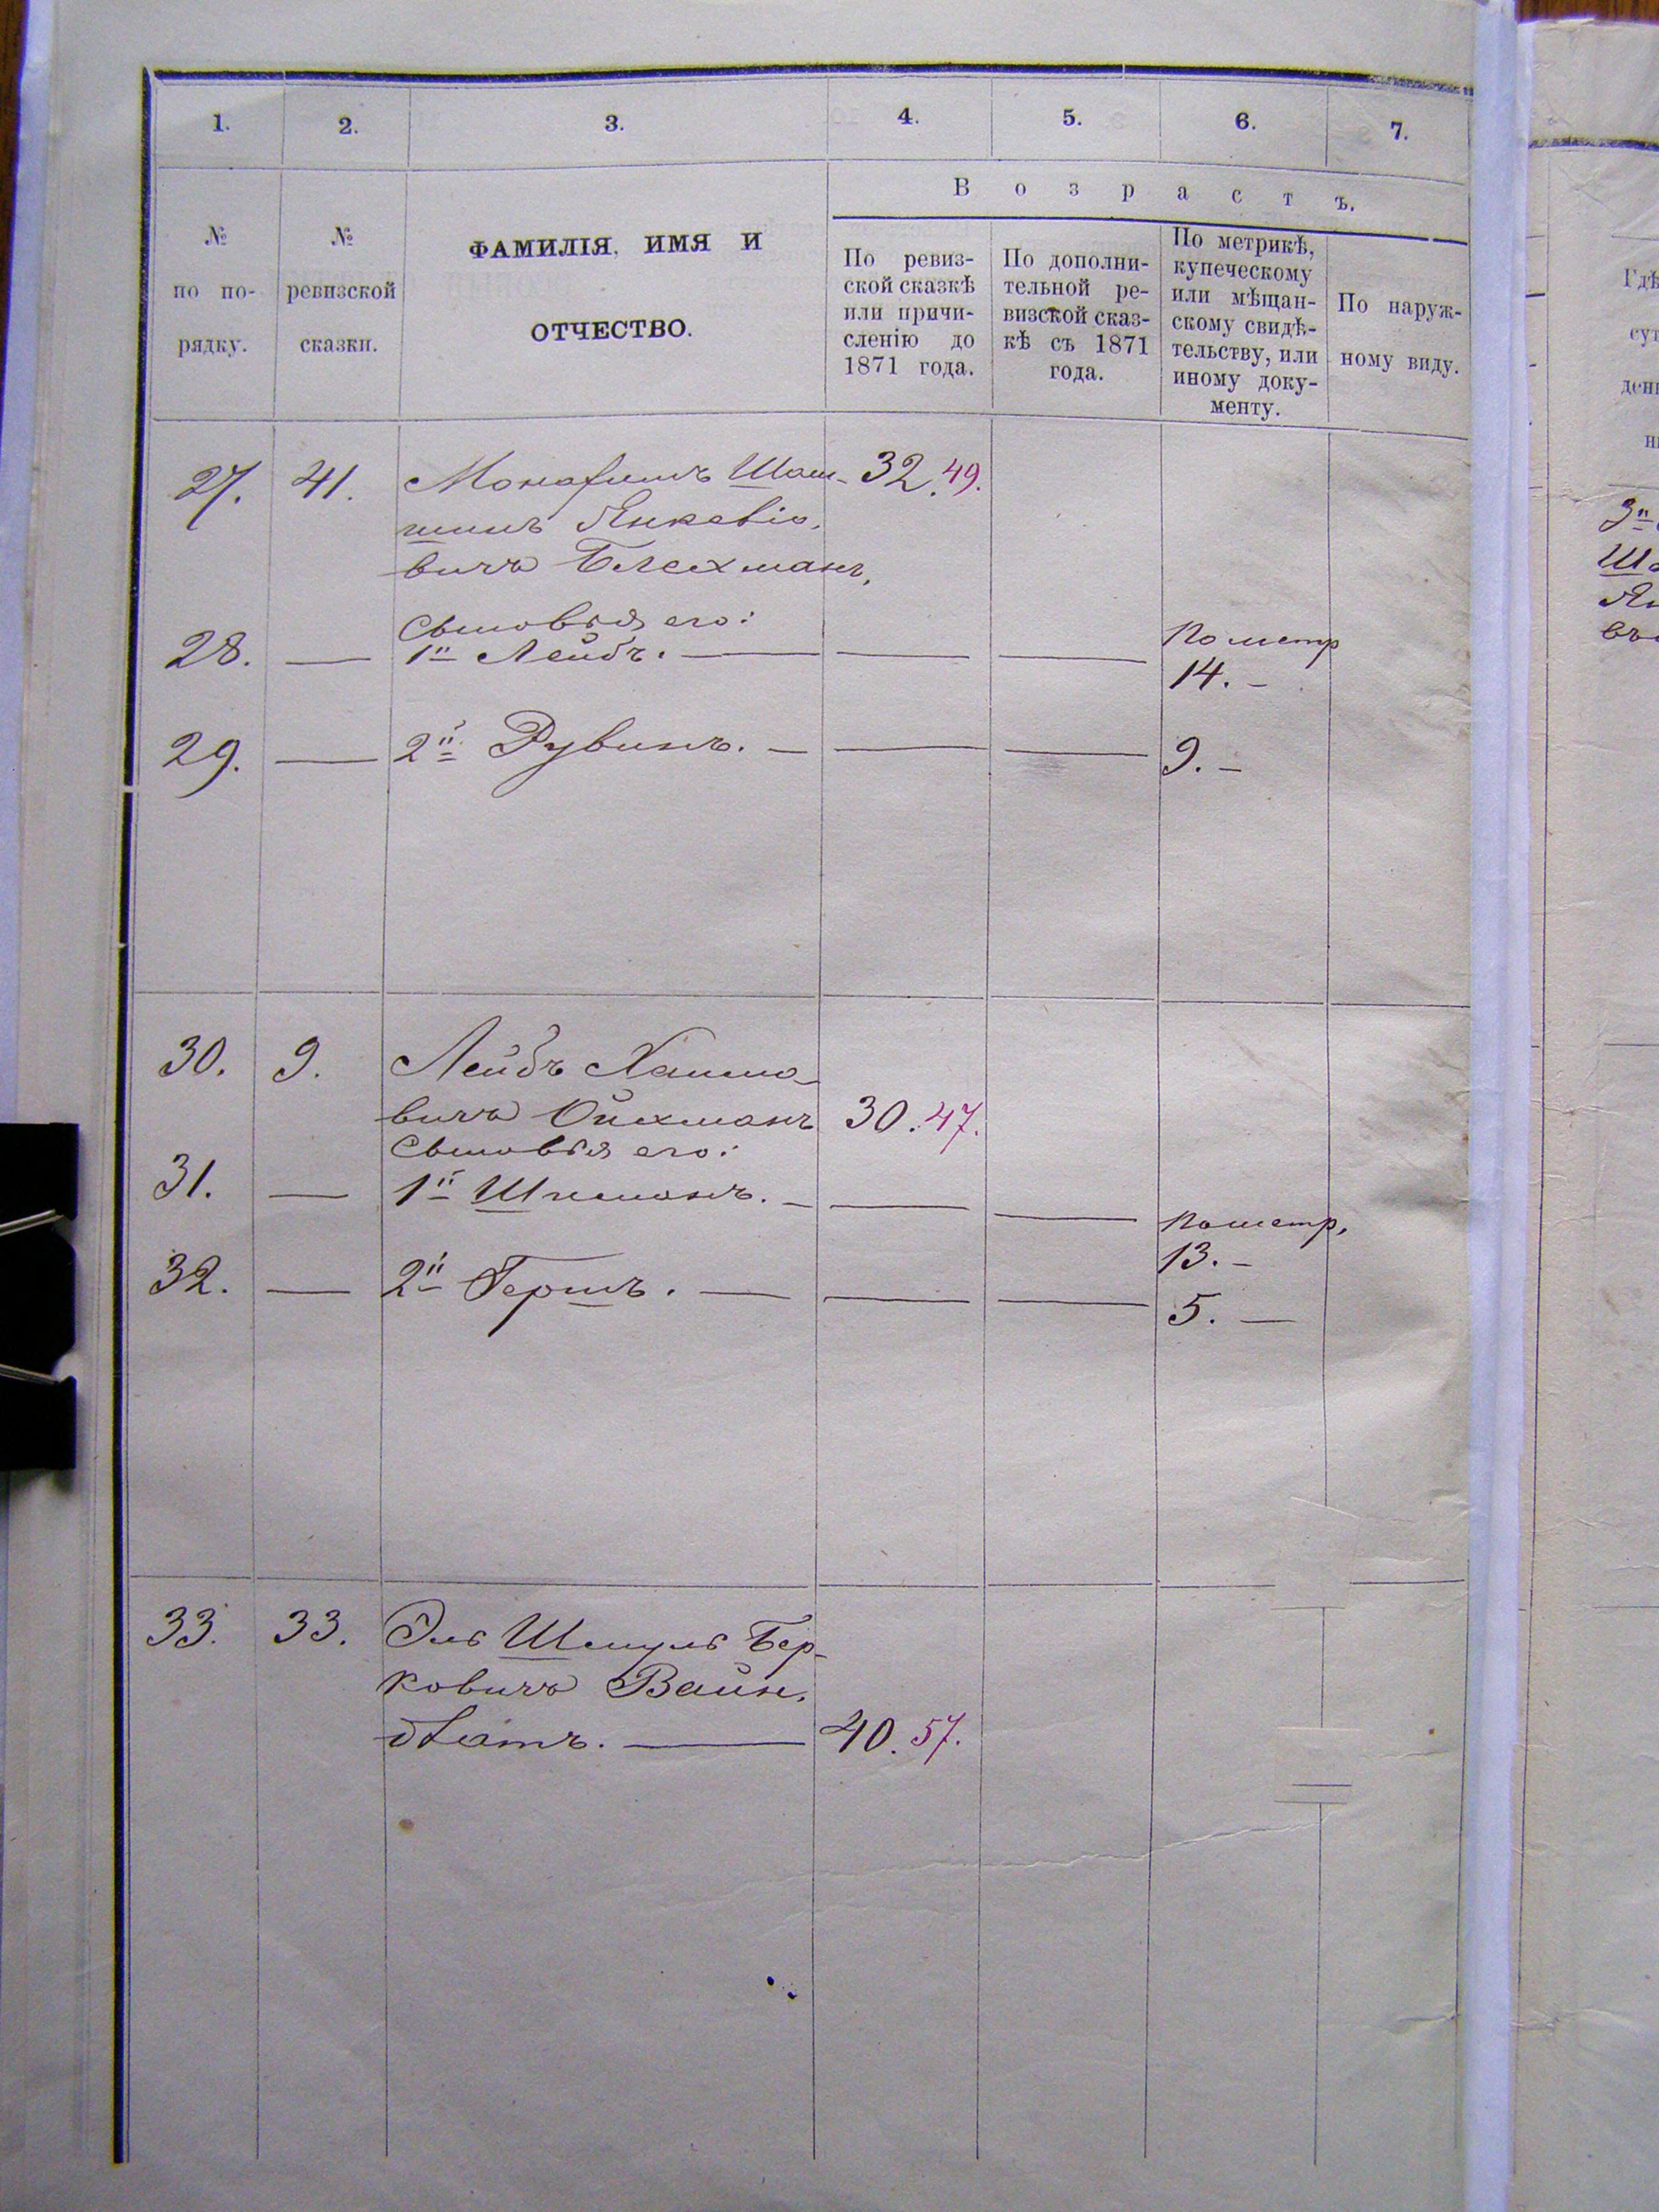 1. 2. 3. 4. 5. 6. 7.
Возрастъ.
№ по порядку.
№ ревизской сказки.
ФАМИЛІЯ, ИМЯ И
ОТЧЕСТВО.
По ревиз-
ской сказкѣ
или причи-
сленію до
1871 года.
По дополни-
тельной ре-
визской сказ-
кѣ съ 1871
года.
По метрикѣ,
купеческому
или мѣщан-
скому свидѣ-
тельству, или
иному доку-
менту.
По наруж-
ному виду.
27. 41. Шац- 32. 49.
Янкеліо-
вичъ Блехманъ,
Сыновья его:
28. — 1й Лейбъ. — — — По метр
14. –
29. — 2й Рувинъ. — — — 9. –
30. 9. Лейбъ Хаимо-
вичъ Ойхманъ 30. 47.
Сыновья его:
31. — 1й Шлеманъ. — — — По метр.
13. –
32. — 2й Гершъ. — — — 5. —
33. 33. Эль Шмуль Бер-
ковичъ Вайн-
блатъ. — 40. 57.
Гдѣ
сут
ден